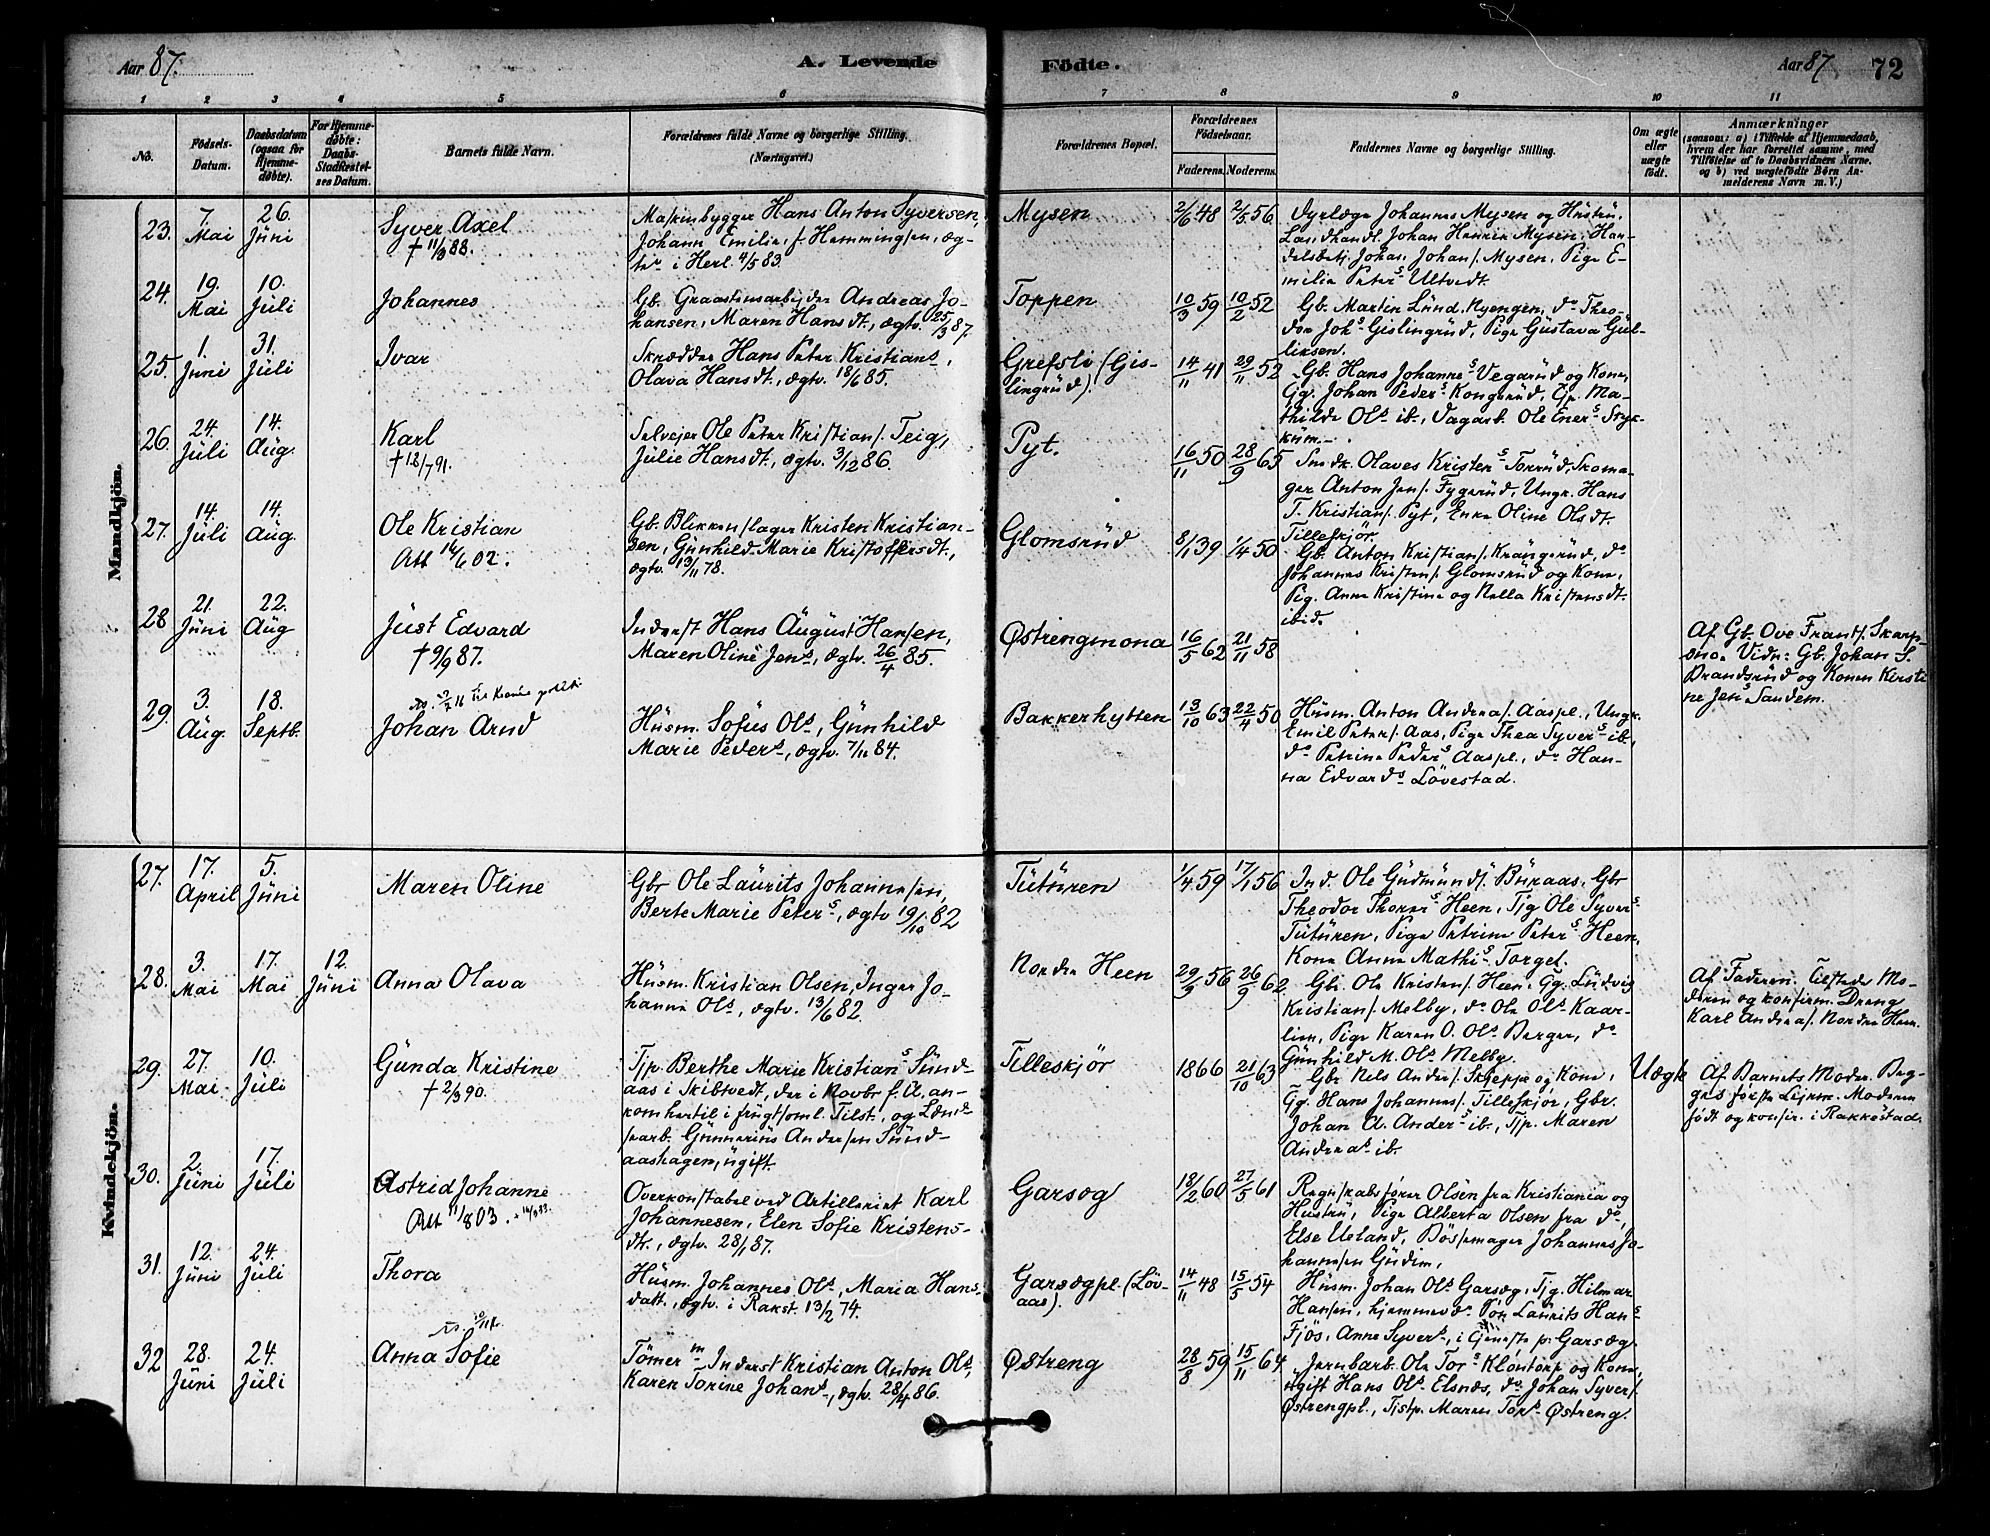 Aar 87.
A. Levende
Födte.
Aar 87
72
1 2 3 4 5 6 7 8 9 10 11
No.
Födsels-
Datum.
Daabsdatum
(ogsaa for
Hjemme-
döbte).
For Hjemme-
döbte:
Daabs-
Stadfæstel-
ses Datum.
Barnets fulde Navn.
Forældrenes fulde Navne og borgerlige Stilling.
(Næringsvei.)
Forældrenes Bopæl.
Forældrenes
Födselsaar.
Faderens. Moderens.
Faddernes Navne og borgerlige Stilling.
Om ægte
eller
uægte
födt.
Anmærkninger
(saasom: a) i Tilfælde af Hjemmedaab,
hvem der har forrettet samme, med
Tilföielse af to Daabsvidners Navne.
og b) ved uægtefödte Börn An-
melderens Navn m. V.)
Mandkjön.
23.
7.
Mai
26.
Juni
Syver Axel
† 11/3 88.
Maskinbygger Hans Anton Syversen,
Johann Emilie, f. Hemmingsen, æg-
tev. i Herl. 4/5 83
Mysen
2/6 48
2/5 56
Dyrlæge Johannes Mysen og Hustru,
Landhandl. Johan Henrik Mysen, Han-
delsbetj. Johan Johans. Mysen, Pige E-
milie Peters Ultvedt.
24.
19.
Mai
10.
Juli
Johannes
Gb. Graastensarbejder Andreas Jo-
hansen, Maren Hansdt., ægtv. 25/3 87.
Toppen
10/3 59
10/2 52
Gb. Martin Lund, Nyengen, do Theo-
dor Johs Gislingrud, Pige Gustava Gul-
liksen.
25.
1.
Juni
31.
Juli
Ivar
Skrædder Hans Peter Kristians,
Olava Hansdt., ægtv. 18/6 85.
Grefsli (Gis-
lingrud)
14/11 41
29/11 52
Gb. Hans Johannes Vegarud og Kone,
Gg. Johan Peders Kongsrud, Tjp. Ma-
thilde Ols ib., Dagarb. Ole Eners Styk-
kum.
26.
24.
Juli
14.
Aug.
Karl
† 18/7 91.
Selvejer Ole Peter Kristians. Teig,
Julie Hansdt., ægtv. 3/12 86.
Pyt.
16/11 50
28/9 65
Smdk. Olaves Kristens Torrud, Skoma-
ger Anton Jens. Fygerud, Ungk. Hans
T. Kristians. Pyt, Enke Oline Olsdt.
Tilleskjør.
27.
14.
Juli
14.
Aug.
Ole Kristian
Att 14/6 02.
Gb. Blikkenslager Kristen Kristian-
sen, Gunhild Marie Kristoffersdt.,
ægtv. 13/11 78.
Glomsrud
8/1 39
1/4 50
Gb. Anton Kristians. Krangsrud, do
Johannes Kristens. Glomsrud og Kone,
Pig. Anne Kristine og Nella Kristensdt.
ibid.
28
21.
Juni
22.
Aug
Just Edvard
† 9/9 87.
Inderst Hans August Hansen,
Maren Oline Jens, ægtv. 26/4 85.
Østrengmona
16/5 62
21/11 58
Af Gb. Ove Frants. Skarp-
sno. Vidn: Gb. Johan S.
Brandsrud og Konen Kirsti-
ne Jens Sandem.
29.
3.
Aug.
18.
Septb.
Johan Arnd
Husm. Sofus Ols, Gunhild
Marie Peders, ægtv. 7/11 84.
Bakkerhytten
13/10 63
22/4 50
Husm. Anton Andreas. Aaspl., Ungk.
Emil Peters. Aas, Pige Thea Syvers ib.,
do Petrine Peders Aaspl., do Han-
na Edvards Løvestad.
Kvindekjön.
27.
17.
April
5.
Juni
Maren Oline
Gbr Ole Laurits Johannesen,
Berte Marie Peters, ægtv 19/10 82
Tuturen
1/4 59
17/1 56
Ind. Ole Gudmunds. Buraas, Gbr
Theodor Thores Heen, Tjg Ole Syvers
Tuturen, Pige Petrine Peters Heen,
Kone Anne Mathis Torgel.
28.
3.
Mai
17.
Mai
12.
Juni
Anna Olava
Husm. Kristian Olsen, Inger Jo-
hanne Ols, ægtv. 13/6 82.
Nordre Heen
29/3 56
26/9 62
Gb. Ole Kristens. Heen, Gg. Ludvig
Kristians. Melby, do Ole Ols Kaar-
lien, Pige Karen O. Ols Berger, do
Gunhild M. Ols Melby.
Af Faderen. Tilstede Mo-
deren og konfirm. Dreng
Karl Andreas. Nordre Heen.
29.
27.
Mai
10.
Juli
Gunda Kristine
† 2/3 90.
Tjp. Berthe Marie Kristians Sund-
aas i Skibtvedt, der i Novbr f. A. an-
kom hertil i frugtsoml. Tilst., og Lænd-
searb. Gunnerius Andersen Sund-
aashagen, ugift.
Tilleskjør
1866
21/10 63
Gbr Nels Anders. Skjeppe og Kone,
Gg. Hans Johannes. Tilleskjør, Gbr.
Johan A. Anders ib., Tjp. Maren
Andreas ib.
Uægte
Af Barnets Moder. Beg-
ges første Lejerm. Moderen
født og konfir. i Rakkestad.
30.
2.
Juni
17.
Juli
Astrid Johanne
Att 11/8 03.
Overkonstabel ved Artilleriet Karl
Johannesen, Elen Sofie Kristens-
dt., ægtv. 28/1 87.
Garsæg
18/2 60
27/5 61
Regnskabsfører Olsen fra Kristiania og
Hustru, Pige Alberta Olsen fra do,
Else Ueland, Bøssemager Johannes Jo-
hannesen Gudim,
31.
12.
Juni
24.
Juli
Thora
Husm. Johannes Ols, Maria Hans-
datt., ægtv. i Rakst. 13/2 74.
Garsægpl. (Løv-
aas).
14/11 48
15/5 54
Husm. Johan Ols Garsæg, Tjg. Hilmar
Hansen, hjemmevd. Søn Laurits Hans
Fjøs, Anne Syvers, i Tjeneste p. Garsæg.
32
28.
Juni
24.
Juli
Anna Sofie
Tømerm Inderst Kristian Anton Ols,
Karen Torine Johans, ægtv. 28/4 86.
Østreng
28/8 59
15/11 64
Jernbarb. Ole Tors Kløntorp og Kone,
ugift Hans Ols Elsnes, do Johan Syvers.
Østrengpl., Tjstp. Maren Tors Østreng.